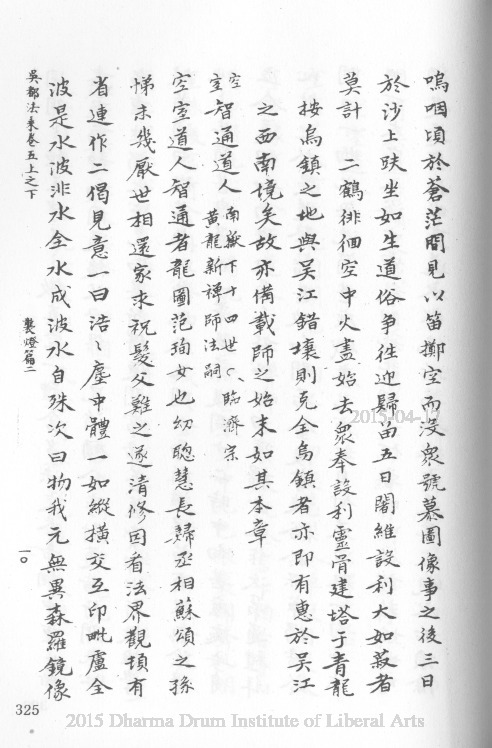 嗚咽頃於蒼茫間見以笛擲空而沒衆號慕圖像事之後三日
於沙上趺坐如生道俗爭往迎歸留五日闍維設利大如菽者
莫計 二鶴徘徊空中火盡始去衆奉設利靈骨建塔于青龍
按烏鎮之地與吳江錯壤則克全烏鎮者亦即有惠於吳江
之西南境矣故亦備載師之始末如其本章
空室智通道人 南嶽下十四世 臨濟宗
黃龍新禪師法嗣
空室道人智通者龍圖范珣女也幼聰慧長歸丞相蘇頌之孫
悌未幾厭世相還家求祝髮父難之遂清修因看法界觀頓有
省連作二偈見意一曰浩〻塵中體一如縱橫交互印毗盧全
波是水波非水全水成波水自殊次曰物我元無異森羅鏡像
吳都法乘卷五上之下
製燈篇二
一〇
325
2015-04-17
2015 Dharma Drum Institute of Liberal Arts